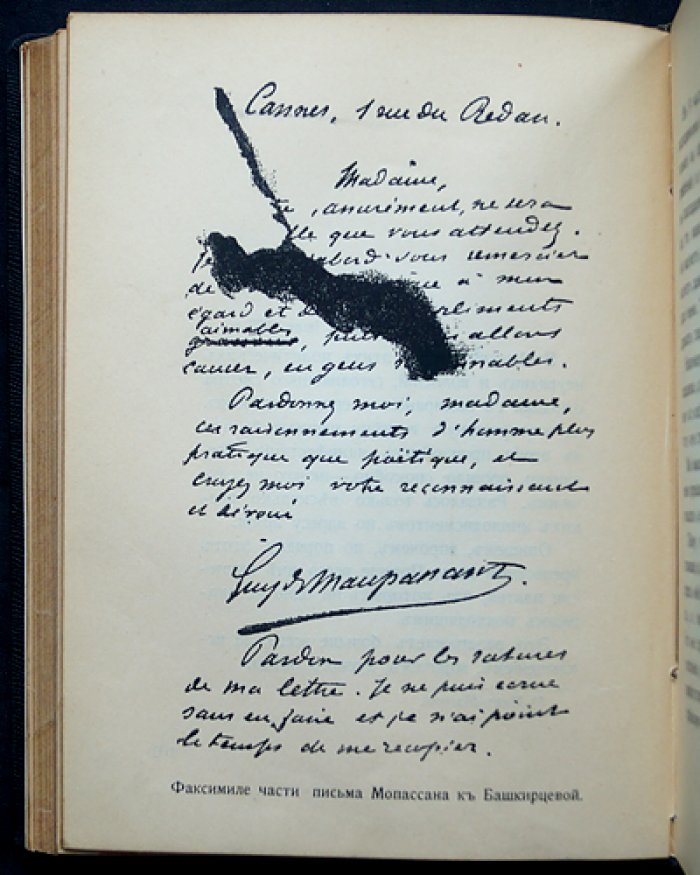 Cannes, 1 rue du Redan.
Madame,
, assurément, ne sera
lle que vous attendez.
Je abord vous remercier
de à mon
égard et d pliments
aimables
, puis allons
causer, en gens nables.
Pardonnez moi, madame,
ces raisonnements d'homme plus
pratique que poëtique, et
croyez moi votre reconnaissant
et dévoué
Guy de Maupassant.
Pardon pour les ratures
de ma lettre. Je ne puis écrire
sans en faire et je n'ai point
le temps de me recopier.
Факсимиле части письма Мопассана къ Башкирцевой.